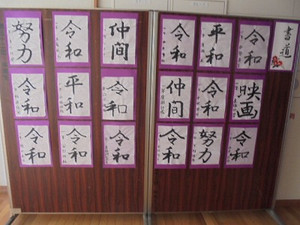 書道
令和
平和
令和
映画
令和
仲間
令和
努力
令和
仲間
令和
努力
令和
平和
令和
令和
令和
令和